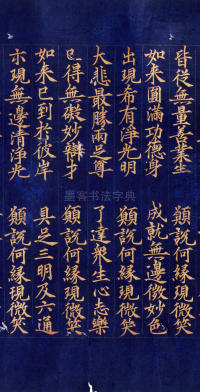 皆從無量善業生　願說何緣現微笑
如來圓滿功德身　成就無邊微妙色
出現希有淨光明　願說何緣現微笑
大悲最勝兩足尊　了達衆生心志樂
已得無礙妙辯才　願說何緣現微笑
如來已到於彼岸　具足三明及六通
示現無邊清淨光　願說何緣現微笑
墨客书法字典